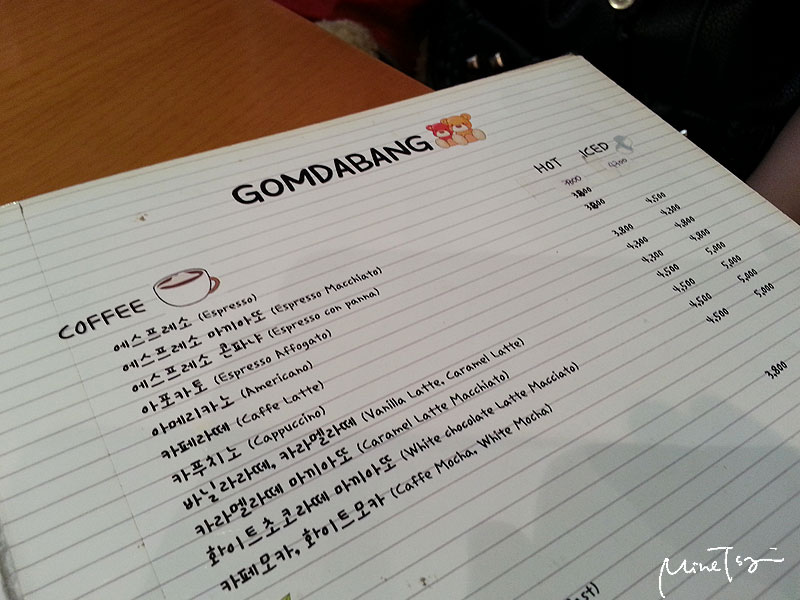 GOMDABANG
HOT ICED
COFFEE
에스프레소 (Espresso)
에스프레소 마끼아또 (Espresso Macchiato) 3,800
에스프레소 콘파냐 (Espresso con panna) 3,800
아포카토 (Espresso Affogato) 4,500
아메리카노 (Americano) 3,800 4,300
카페라떼 (Caffe Latte) 4,300 4,800
카푸치노 (Cappuccino) 4,300 4,800
바닐라라떼, 카라멜라떼 (Vanilla Latte, Caramel Latte) 4,500 5,000
카라멜라떼 마끼아또 (Caramel Latte Macchiato) 4,500 5,000
화이트초코라떼 마끼아또 (White chocolate Latte Macciato) 4,500 5,000
카페모카, 화이트모카 (Caffe Mocha, White Mocha) 4,500 5,000
3,800